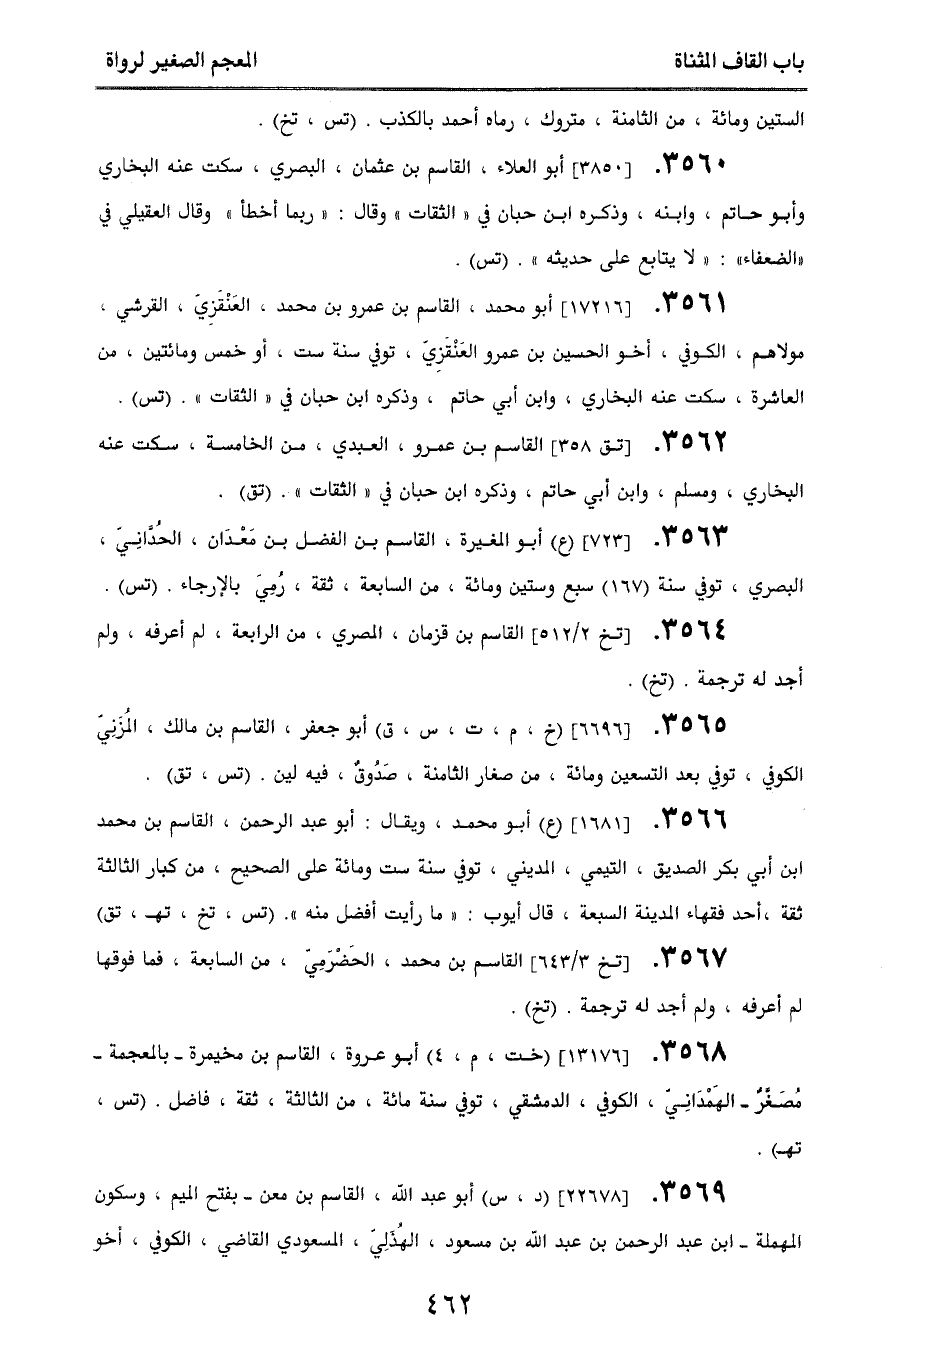 باب القاف المثناة
المعجم الصغير لرواة
الستين ومائة ، من الثامنة ، متروك ، رماه أحمد بالكذب . (تس ، تخ) .
٣٥٦٠. [٣٨٥٠] أبو العلاء ، القاسم بن عثمان ، البصري ، سكت عنه البخاري
وأبو حاتم ، وابنه ، وذكره ابن حبان في « الثقات » وقال : « ربما أخطأ » وقال العقيلي في
«الضعفاء» : « لا يتابع على حديثه » . (تس) .
٣٥٦١. [١٧٢١٦] أبو محمد ، القاسم بن عمرو بن محمد ، العَنْقَزِيّ ، القرشي ،
مولاهم ، الكوفي ، أخو الحسين بن عمرو العَنْقَزِيّ ، توفي سنة ست ، أو خمس ومائتين ، من
العاشرة ، سكت عنه البخاري ، وابن أبي حاتم ، وذكره ابن حبان في « الثقات » . (تس) .
٣٥٦٢. [تق ٣٥٨] القاسم بن عمرو ، العبدي ، من الخامسة ، سكت عنه
البخاري ، ومسلم ، وابن أبي حاتم ، وذكره ابن حبان في « الثقات » . (تق) .
٣٥٦٣. [٧٢٣] (ع) أبو المغيرة ، القاسم بن الفضل بن مَعْدَان ، الحُدَّانِيّ ،
البصري ، توفي سنة (١٦٧) سبع وستين ومائة ، من السابعة ، ثقة ، رُمِيَ بالإرجاء . (تس) .
٣٥٦٤. [تخ ٥١٢/٢] القاسم بن قزمان ، المصري ، من الرابعة ، لم أعرفه ، ولم
أجد له ترجمة . (تخ) .
٣٥٦٥. [٦٦٩٦] (خ ، م ، ت ، س ، ق) أبو جعفر ، القاسم بن مالك ، المُزَنِيّ
الكوفي ، توفي بعد التسعين ومائة ، من صغار الثامنة ، صَدُوقٌ ، فيه لين . (تس ، تق) .
٣٥٦٦. [١٦٨١] (ع) أبو محمد ، ويقال : أبو عبد الرحمن ، القاسم بن محمد
ابن أبي بكر الصديق ، التيمي ، المديني ، توفي سنة ست ومائة على الصحيح ، من كبار الثالثة
ثقة ،أحد فقهاء المدينة السبعة ، قال أيوب : « ما رأيت أفضل منه ». (تس ، تخ ، تهـ ، تق)
٣٥٦٧. [تخ ٦٤٣/٣] القاسم بن محمد ، الحَضْرَمِيّ ، من السابعة ، فما فوقها
لم أعرفه ، ولم أجد له ترجمة . (تخ) .
٣٥٦٨. [١٣١٧٦] (خت ، م ، ٤) أبو عروة ، القاسم بن مخيمرة ـ بالمعجمة ـ
مُصَغَّرٌ ـ الهَمْدَانِيّ ، الكوفي ، الدمشقي ، توفي سنة مائة ، من الثالثة ، ثقة ، فاضل . (تس ،
تهـ) .
٣٥٦٩. [٢٢٦٧٨] (د ، س) أبو عبد الله ، القاسم بن معن ـ بفتح الميم ، وسكون
المهملة ـ ابن عبد الرحمن بن عبد الله بن مسعود ، الهُذَلِيّ ، المسعودي القاضي ، الكوفي ، أخو
٤٦٢